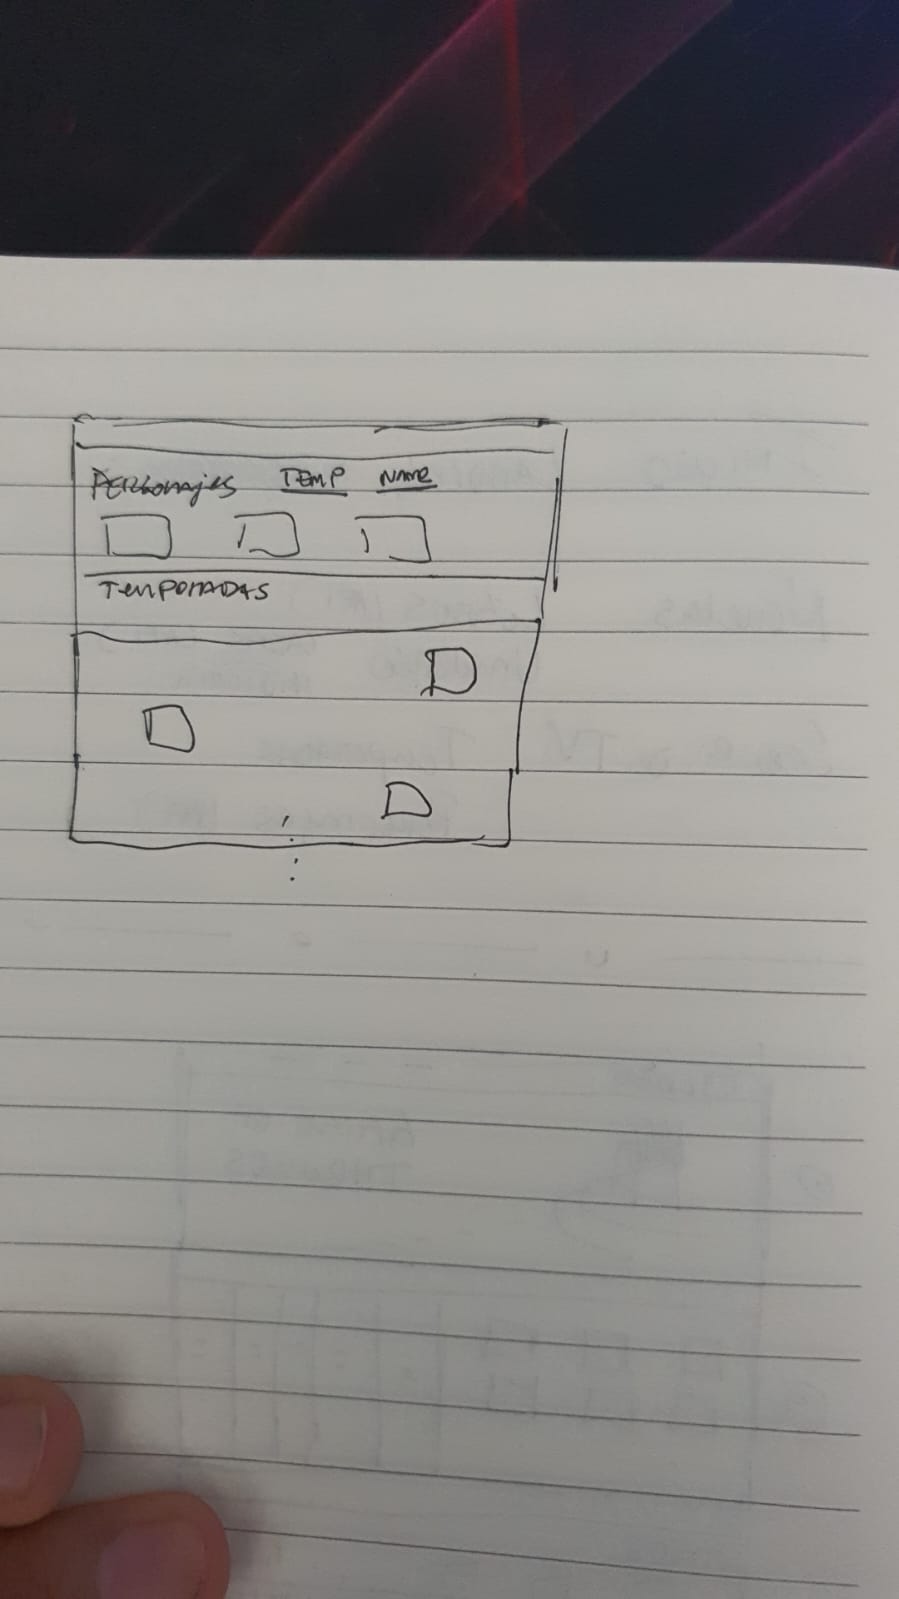 Personajes TEMP NAME
TEMPORADAS